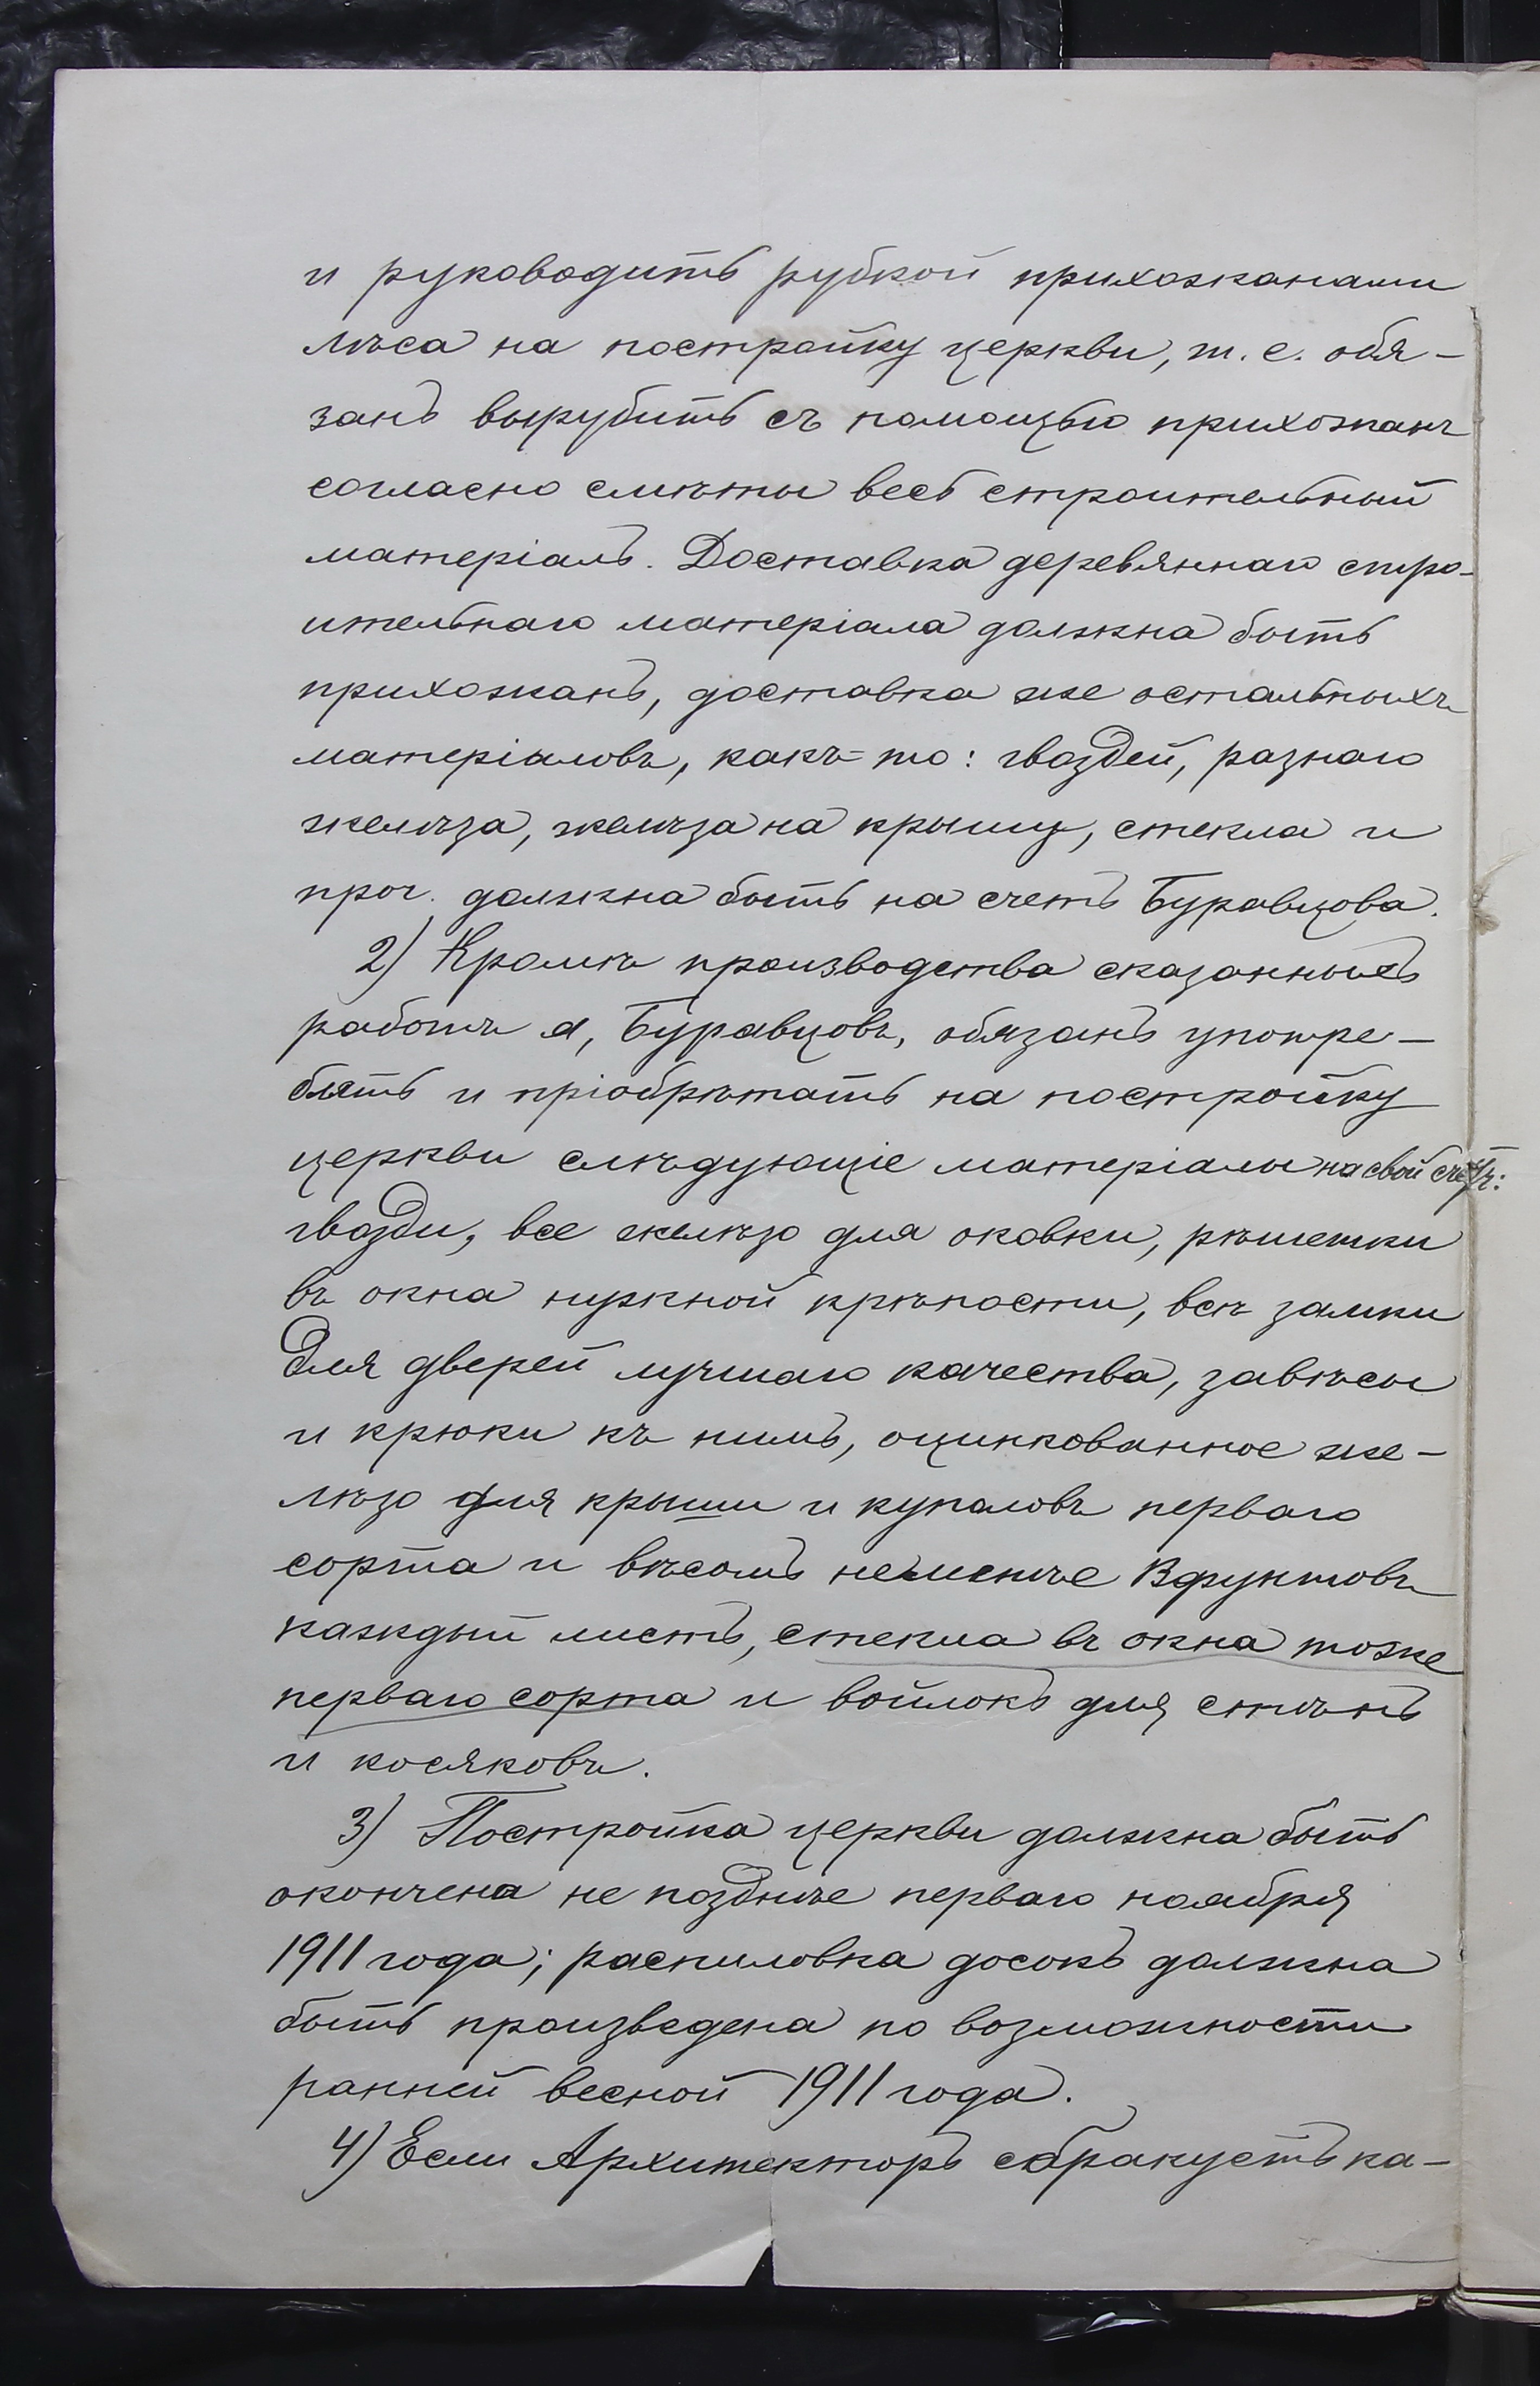 и руководить рубкой прихожанами
лѣса на постройку церкви, т. е. обя-
занъ вырубить съ помощью прихожанъ
согласно смѣты весь строительный
матеріалъ. Доставка деревяннаго стро-
ительнаго матеріала должна быть
прихожанъ, доставка же остальныхъ
матеріаловъ, какъ-то: гвоздей, разнаго
желѣза, желѣза на крышу, стекла и
проч. должна быть на счетъ Буравцова.
2) Кромѣ производства сказанныхъ
работъ я, Буравцовъ, обязанъ употре-
блять и пріобрѣтать на постройку
церкви слѣдующіе матеріалы на свой счетъ:
гвозди, все желѣзо для оковки, рѣшетки
въ окна нужной крѣпости, всѣ замки
для дверей лучшаго качества, завѣсы
и крюки къ нимъ, оцинкованное же-
лѣзо для крыши и куполовъ перваго
сорта и вѣсомъ не менѣе 13 фунтовъ
каждый листъ, стекла въ окна тоже
перваго сорта и войлокъ для стѣнъ
и косяковъ.
3) Постройка церкви должна быть
окончена не позднѣе перваго ноября
1911 года; распиловка досокъ должна
быть произведена по возможности
ранней весной 1911 года.
4) Если Архитекторъ сбракуетъ ка-